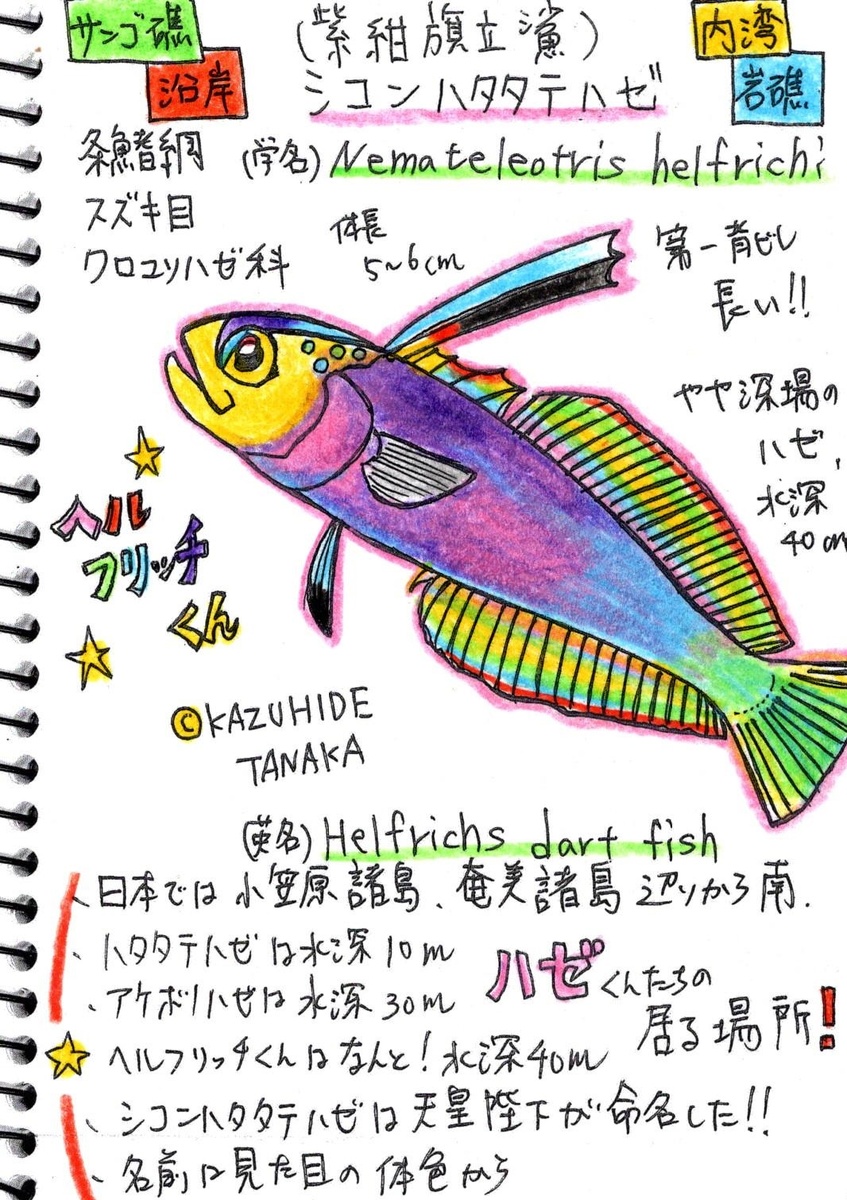 サンゴ礁
沿岸
(紫紺旗立鯊)
シコンハタタテハゼ
内湾
岩礁
条鰭綱
スズキ目
クロユリハゼ科
(学名)Nemateleotris helfrichi
体長
5~6cm
第一背ビレ
長い!!
やや深場の
ハゼ、
水深
40m
ヘル
フリッチ
くん
©KAZUHIDE
TANAKA
(英名)Helfrichs dart fish
、日本では小笠原諸島、奄美諸島辺りから南.
、ハタタテハゼは水深10m
、アケボノハゼは水深30m
ハゼくんたちの
居る場所!
ヘルフリッチくんはなんと!水深40m
、シコンハタタテハゼは天皇陛下が命名した!!
、名前は見た目の体色から